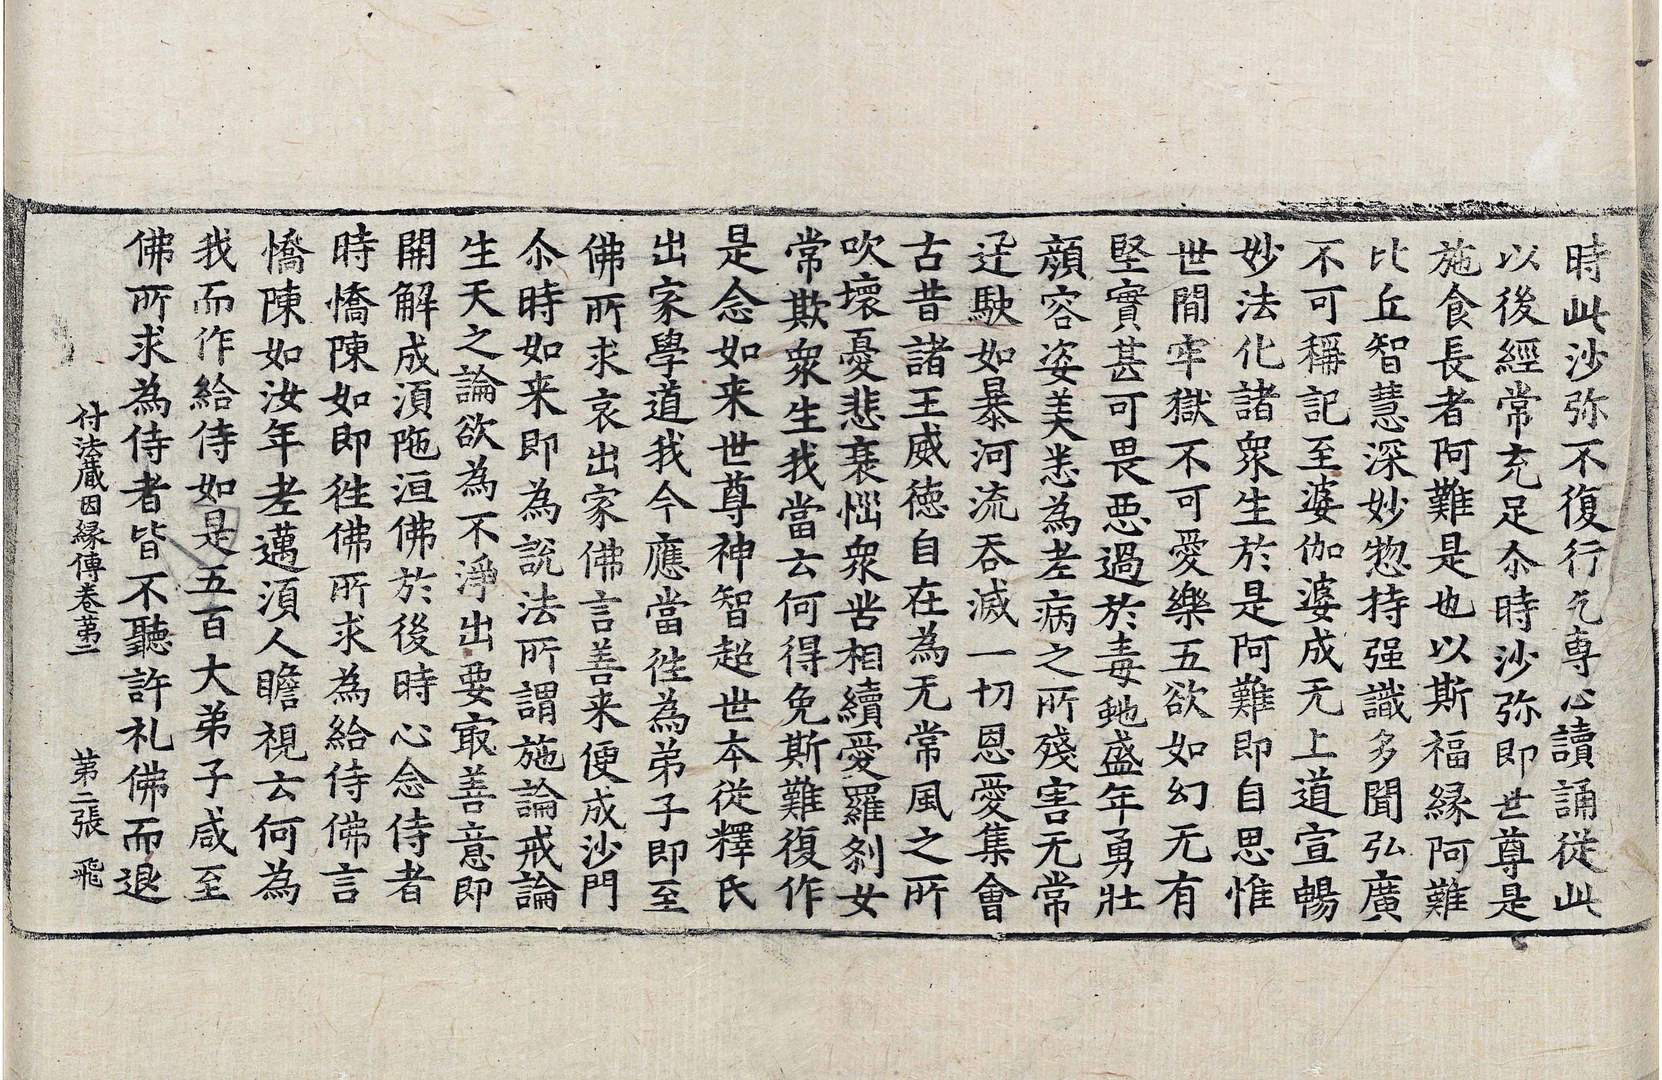 時此沙弥不復行乞專心讀誦從此
以後經常充足尒時沙弥即世尊是
施食長者阿難是也以斯福縁阿難
比丘智慧深妙惣持强識多聞弘廣
不可稱記至婆伽婆成无上道宣暢
妙法化諸衆生於是阿難即自思惟
世間牢獄不可愛樂五欲如幻无有
堅實甚可畏惡過於毒虵盛年勇壯
顔容姿美悉為老病之所殘害无常
迅駛如暴河流吞滅一切恩愛集會
古昔諸王威德自在為无常風之所
吹壞憂悲衰惱衆苦相續愛羅刹女
常欺衆生我當云何得免斯難復作
是念如来世尊神智超世本從釋氏
出家學道我今應當往為弟子即至
佛所求哀出家佛言善来便成沙門
尒時如来即為說法所謂施論戒論
生天之論欲為不淨出要㝡善意即
開解成湏陁洹佛於後時心念侍者
時憍陳如即往佛所求為給侍佛言
憍陳如汝年老邁湏人瞻視云何為
我而作給侍如是五百大弟子咸至
佛所求為侍者皆不聽許礼佛而退
付法藏因縁傳卷第二 第二張 飛